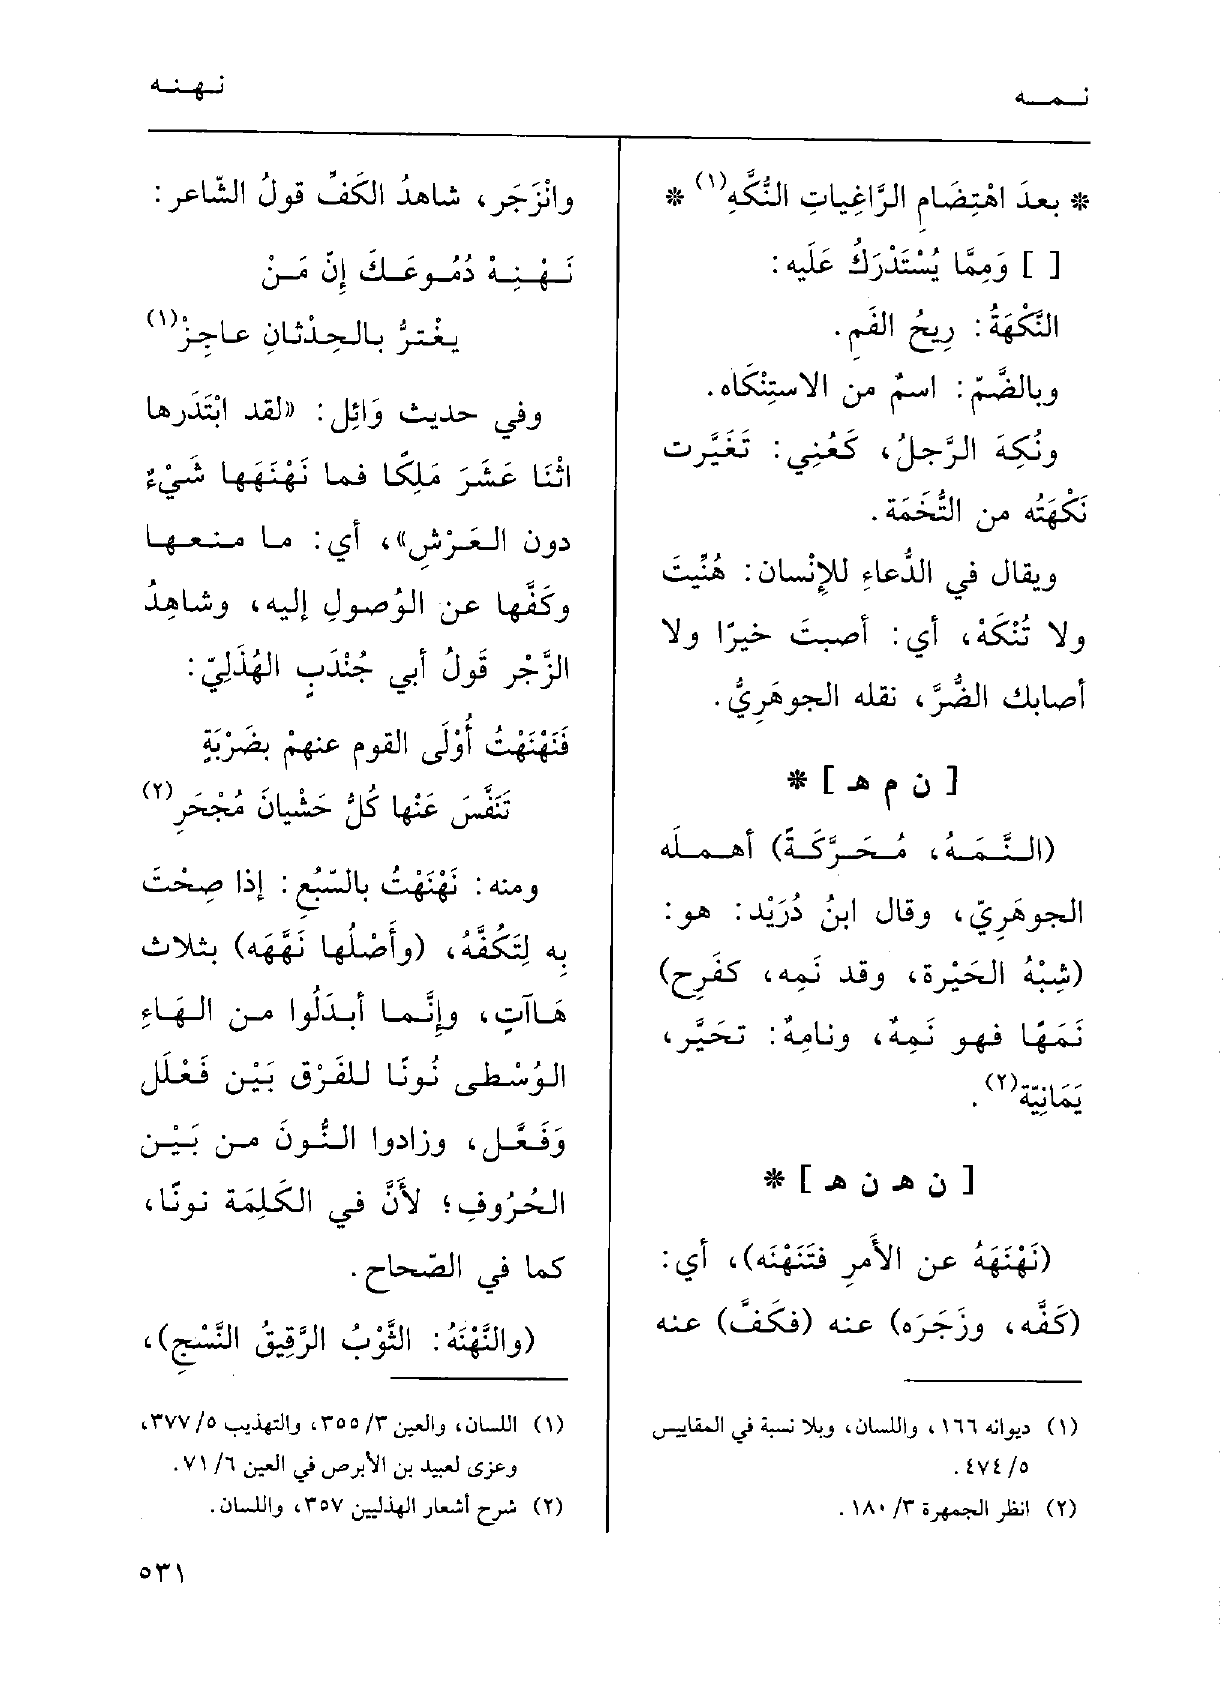 نمه
نهنه
* بعدَ اهْتِضَامِ الرَّاغِياتِ النُّكَّهِ(١) *
[ ] وَمِمَّا يُسْتَدْرَكُ عَلَيه:
النَّكْهَةُ: رِيحُ الفَمِ.
وبالضَّمّ: اسمٌ من الاستِنْكَاه.
ونُكِهَ الرَّجلُ، كَعُنِي: تَغَيَّرت
نَكْهَتُه من التُّخَمَة.
ويقال في الدُّعاءِ للإنْسان: هُنِّيتَ
ولا تُنْكَهْ، أي: أصبتَ خيرًا ولا
أصابك الضُّرَّ، نقله الجوهَرِيُّ.
[ ن م هـ ] *
(النَّمَهُ، مُحَرَّكَةً) أهمله
الجوهَرِيّ، وقال ابنُ دُرَيْد: هو:
(شِبْهُ الحَيْرة، وقد نَمِه، كفَرِح)
نَمَهًا فهو نَمِهٌ، ونامِهٌ: تحَيَّر،
يَمَانِيّة(٢).
[ ن هـ ن هـ ] *
(نَهْنَهَهُ عن الأَمرِ فتَنَهْنَه)، أي:
(كَفَّه، وزَجَرَه) عنه (فكَفَّ) عنه
(١) ديوانه ١٦٦، واللسان، وبلا نسبة في المقاييس
٥/ ٤٧٤.
(٢) انظر الجمهرة ٣/ ١٨٠.
وانْزَجَر، شاهدُ الكَفِّ قولُ الشّاعر:
نَهْنِهْ دُمُوعَكَ إنّ مَنْ
يغْترُّ بالحِدْثانِ عاجِزْ(١)
وفي حديث وَائِل: «لقد ابْتَدَرها
اثْنا عَشَرَ مَلِكًا فما نَهْنَهَها شَيْءٌ
دون العَرْشِ»، أي: ما منعها
وكَفَّها عن الوُصولِ إليه، وشاهِدُ
الزَّجْر قَولُ أبي جُنْدَبٍ الهُذَلِيّ:
فَنَهْنَهْتُ أُوْلَى القوم عنهمْ بضَرْبَةٍ
تَنَفَّسَ عَنْها كُلُّ حَشْيانَ مُجْحَرِ(٢)
ومنه: نَهْنَهْتُ بالسَّبُعِ: إذا صِحْتَ
بِه لِتَكُفَّهُ، (وأَصْلُها نَهَّهَه) بثلاث
هَاآتٍ، وإنَّما أبدَلُوا من الهَاءِ
الوُسْطى نُونًا للفَرْق بَيْن فَعْلَل
وَفَعَّل، وزادوا النُّونَ من بَيْن
الحُرُوفِ؛ لأَنَّ في الكَلِمَة نونًا،
كما في الصّحاح.
(والنَّهْنَهُ: الثَّوْبُ الرَّقِيقُ النَّسْجِ)،
(١) اللسان، والعين ٣/ ٣٥٥، والتهذيب ٥/ ٣٧٧،
وعزى لعبيد بن الأبرص في العين ٦/ ٧١.
(٢) شرح أشعار الهذليين ٣٥٧، واللسان.
٥٣١